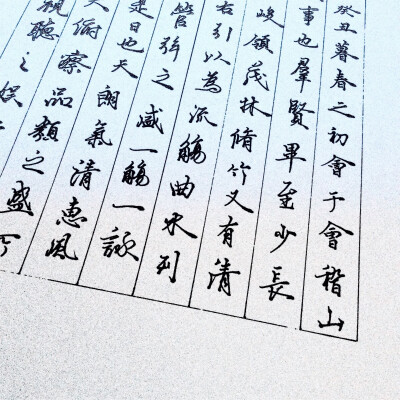 癸丑暮春之初會于會稽山
事也羣賢畢至少長
峻領茂林脩竹又有清
右引以為流觴曲水列
管弦之盛一觴一詠
是日也天朗氣清惠風
大俯察品類之盛
視聽之娛